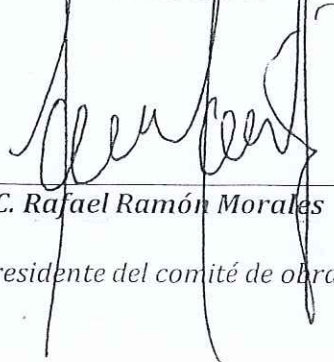 C. Rafael Ramón Morales
residente del comité de obra